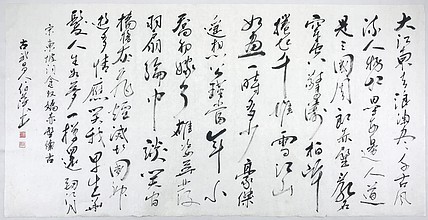 大江東去浪淘尽千古風
流人物故壘西邊人道
是三國周郎赤壁亂石
穿空驚濤拍岸
捲起千堆雪江山
如畫一時多少豪傑
遙想公瑾當年小
喬初嫁了雄姿英發
羽扇綸巾談笑間
檣櫓灰飛煙滅故國神
遊多情應笑我早生華
髮人生如夢一樽還酹江月
宋東坡詞念奴嬌赤壁懷古